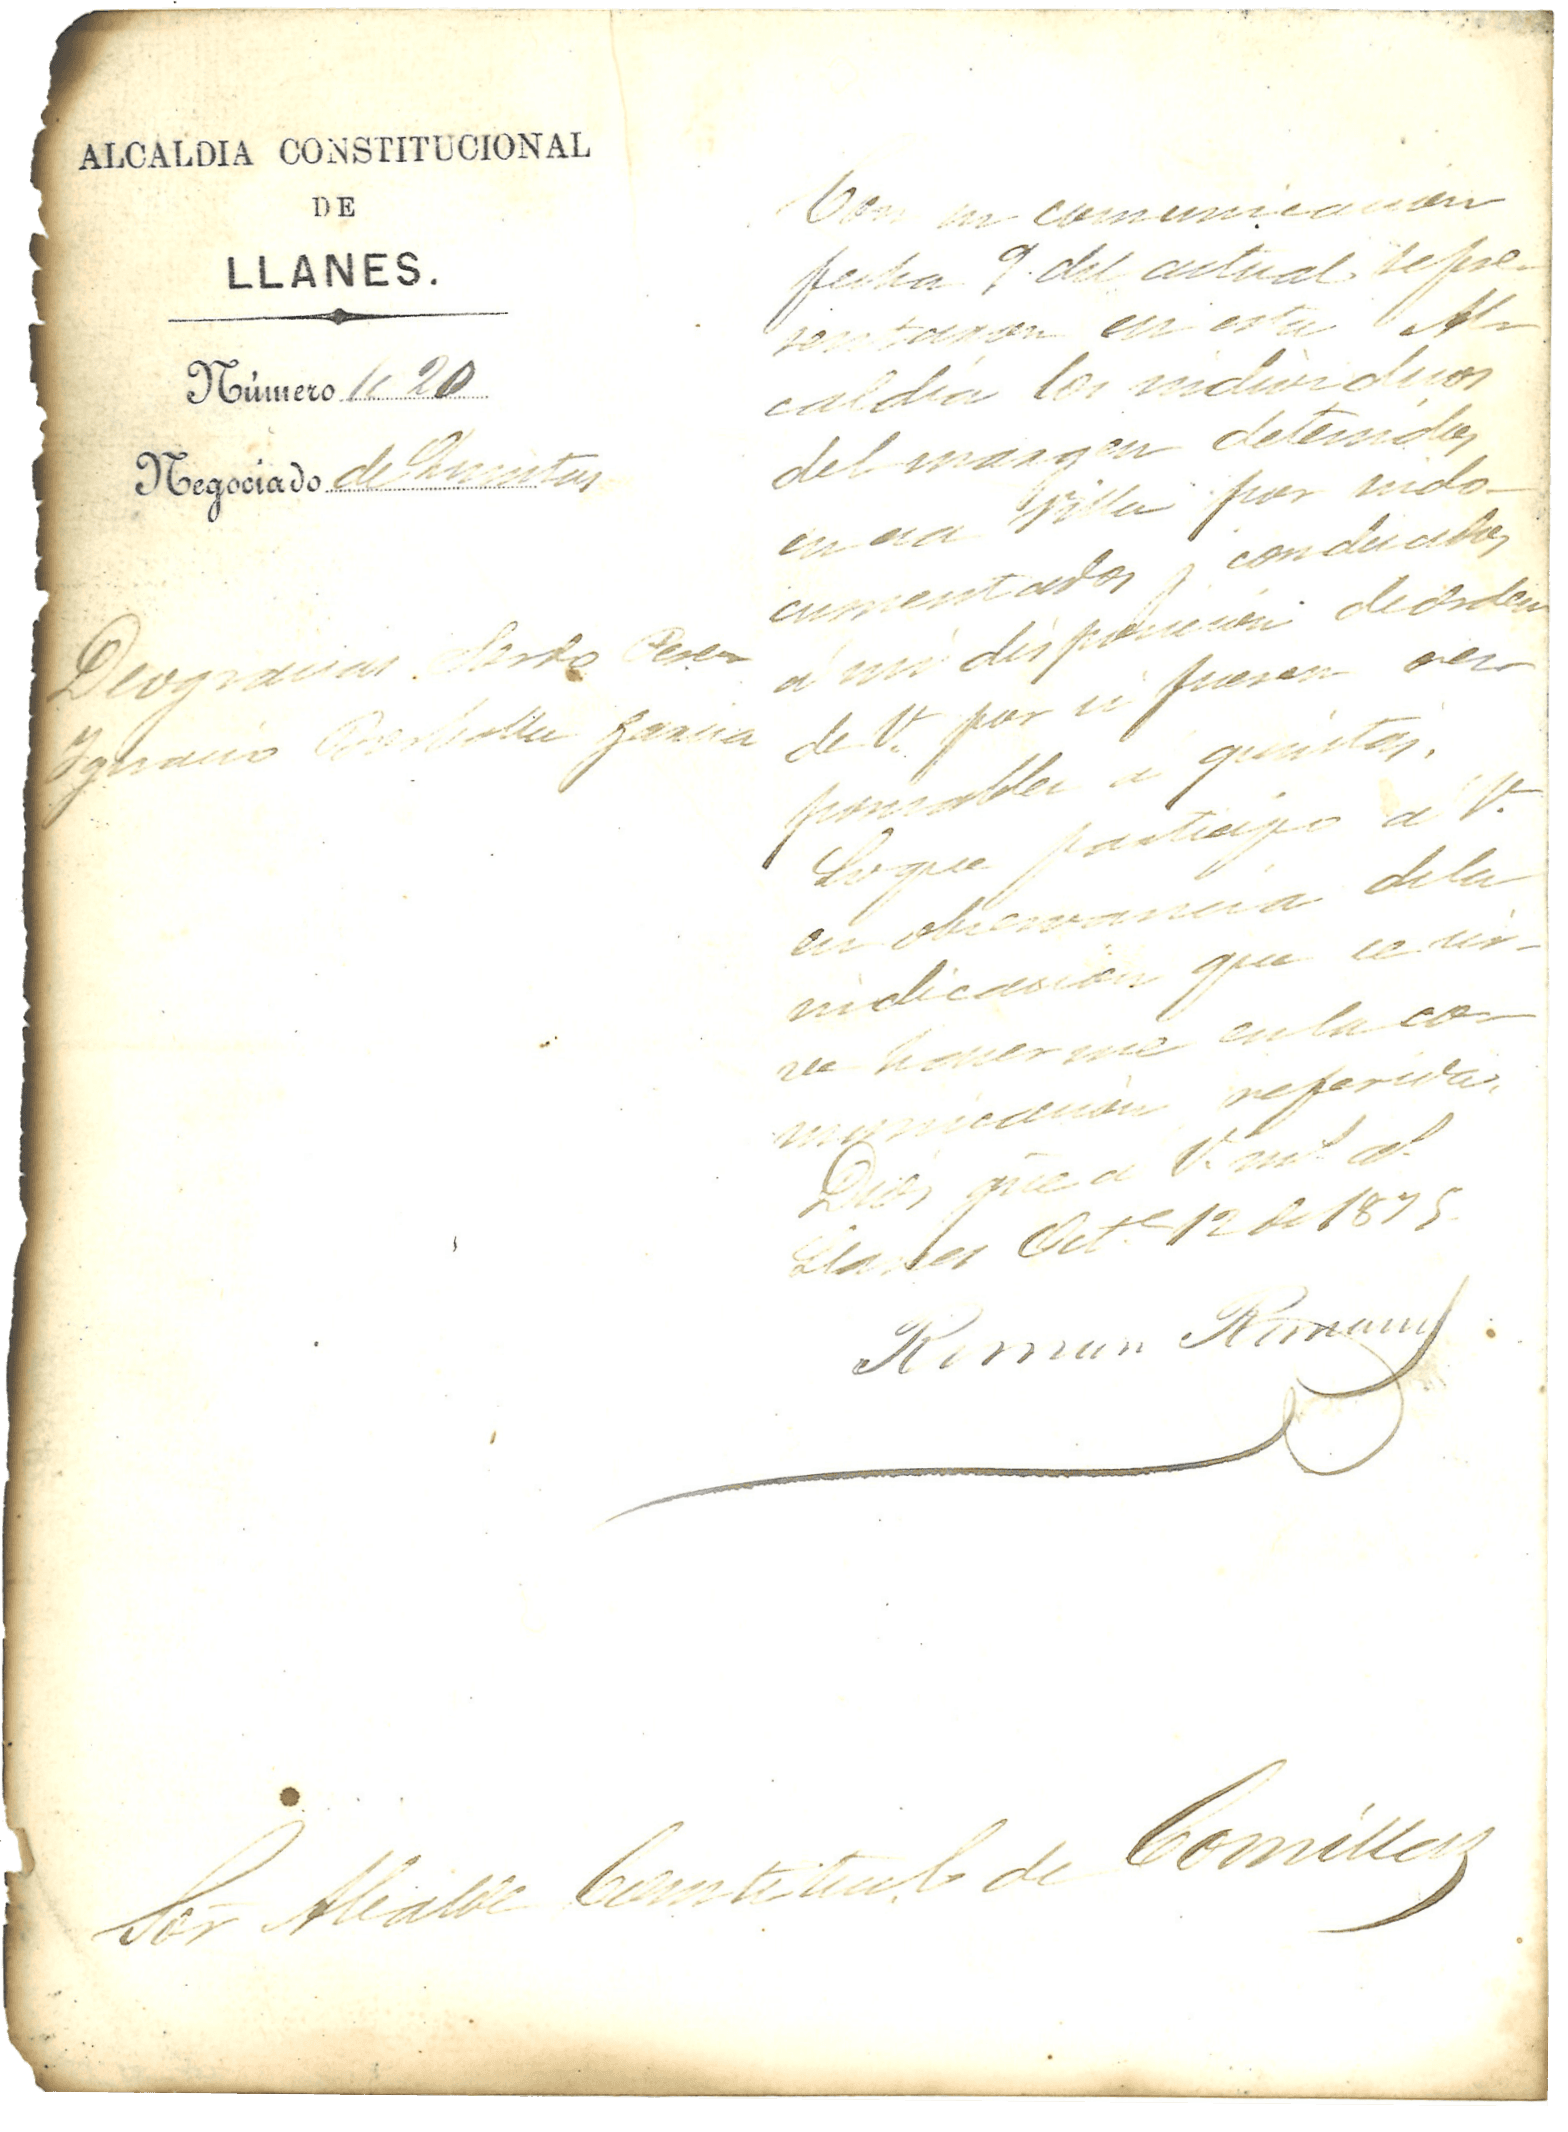 ALCALDIA CONSTITUCIONAL
DE
LLANES.
Número 1020
Negociado de Quintas
Deogracias Perez
Ygnacio Garcia
Con su comunicacion
fecha 9 del actual se pre-
sentaron en esta Al-
caldía los individuos
del margen detenidos
en esa Villa por indo-
cumentados y conducidos
á mi disposicion de orden
de V. por si fueran res-
ponsables á quintas.
Lo que participo á V.
en observancia de la
indicacion que se sir-
ve hacerme en la co-
municacion referida.
Dios gue a V. ms. as.
Llanes Octe. 12 de 1875.
Roman Romano
Sor Alcalde Constitucl. de Comillas